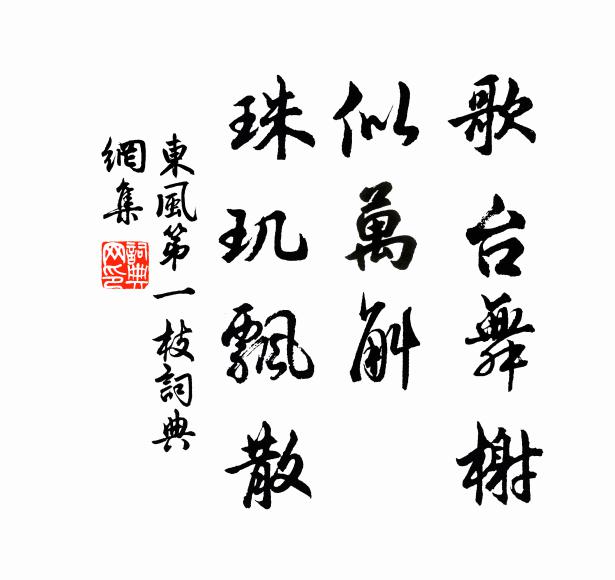 歌台舞榭
似萬斛
珠玑飄散
東風第一枝詞典
網集
詞典網印